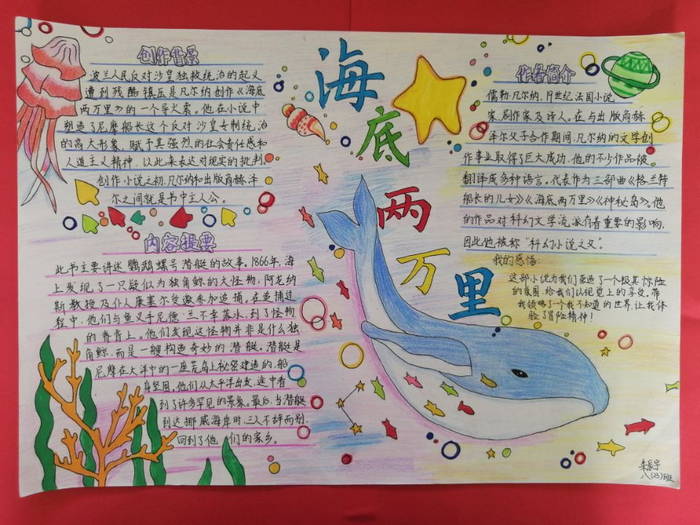 海底两万里
创作背景
波兰人民反对沙皇独裁统治的起义
遭到残酷镇压是凡尔纳创作《海底
两万里》的一个导火索。他在小说中
塑造了尼摩船长这个反对沙皇专制统治
的高大形象，赋予其强烈的社会责任感和
人道主义精神，以此来表达对现实的批判
创作小说之初，凡尔纳和出版商赫泽
尔之间就是书中主人公。
内容提要
此书主要讲述鹦鹉螺号潜艇的故事。1866年，海
上发现了一只疑似为独角鲸的大怪物，阿龙纳
斯教授及仆人康塞尔受邀参加追捕。在追捕过
程中，他们与鱼叉手尼德·兰不幸落水，到了怪物
的脊背上。他们发现这怪物并非是什么独
角鲸，而是一艘构造奇妙的潜艇。潜艇是
尼摩在大洋中的一座荒岛上秘密建造的，船
身坚固。他们从太平洋出发，途中看
到了许多罕见的景象。最后，当潜艇
到达挪威海岸时，三人不辞而别，
回到了他们的家乡。
作者简介
儒勒·凡尔纳，19世纪法国小说
家、剧作家及诗人。在与出版商赫
泽尔父子合作期间，凡尔纳的文学创
作事业取得了巨大成功，他的不少作品被
翻译成多种语言。代表作为三部曲《格兰特
船长的儿女》《海底两万里》《神秘岛》。他
的作品对科幻文学流派有着重要的影响，
因此他被称"科幻小说之父"。
我的感悟
这部小说为我们营造了一个极其惊险
的氛围，给我们以视觉上的享受，带
我领略了一个我不知道的世界，让我体
验了冒险精神！
八(23)班